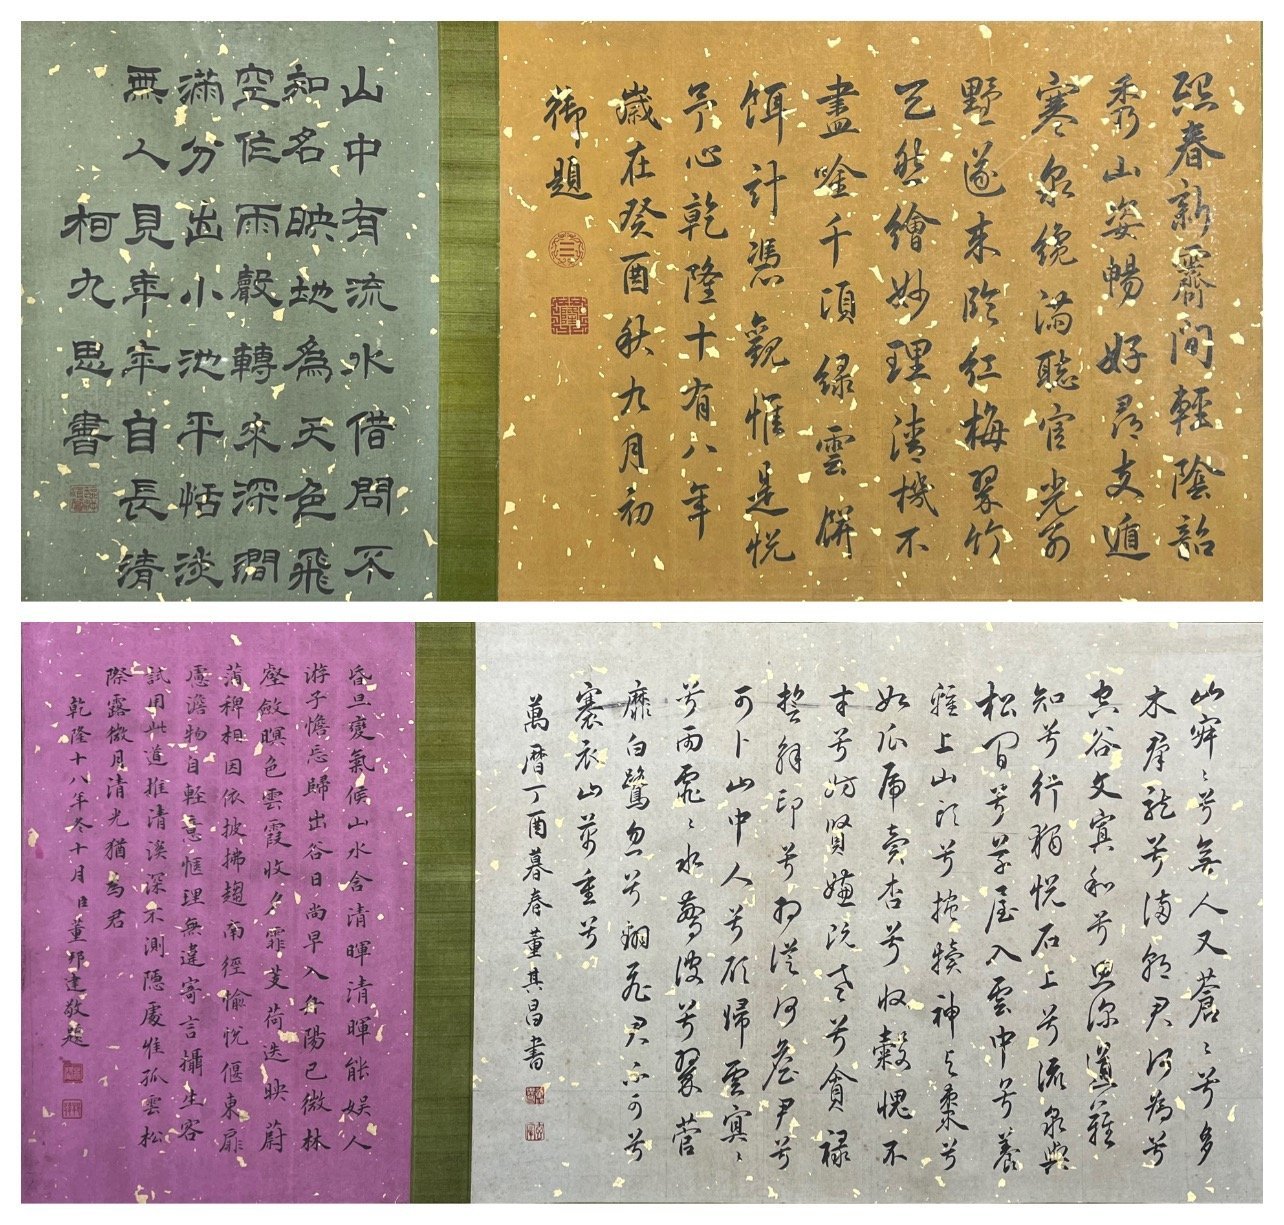 熙春新霽間輕陰詔
秀山姿暢好尋支遁
寒泉纔滿聽官光前
野遂来臨紅梅翠竹
已然繪妙理清機不
盡唫千頃緑雲餅
餌計憑觀惟是悦
予心乾隆十有八年
歲在癸酉秋九月初
御題
山中有流水借問不
知名映地為天色飛
空作雨聲轉來深澗
滿分出小池平恬淡
無人見年年自長清
柯九思書
山寂〻兮無人又蒼〻兮多
木群龍兮滿朝君何為兮
空谷文寡和兮思深道難
知兮行獨悦石上兮流泉與
松間兮草屋入雲中兮養
雞上山頭兮抱犢神与棗兮
如瓜虎賣杏兮收穀愧不
才兮妨賢嫌既老兮貪祿
誓解印兮相從何詹尹兮
可卜山中人兮欲歸雲冥〻
兮雨霏〻水驚波兮翠菅
靡白鷺忽兮翻飛君不可兮
褰衣山萬重兮
萬曆丁酉暮春董其昌書
昏旦變氣候山水含清暉清暉能娱人
游子憺忘歸出谷日尚早入舟陽已微林
壑斂暝色雲霞收夕霏芰荷迭映蔚
蒲稗相因依披拂趨南徑愉悦偃東扉
慮澹物自輕意愜理無違寄言攝生客
試用此道推清溪深不測隱處惟孤雲松
際露微月清光猶為君
乾隆十八年冬十月臣董邦達敬題